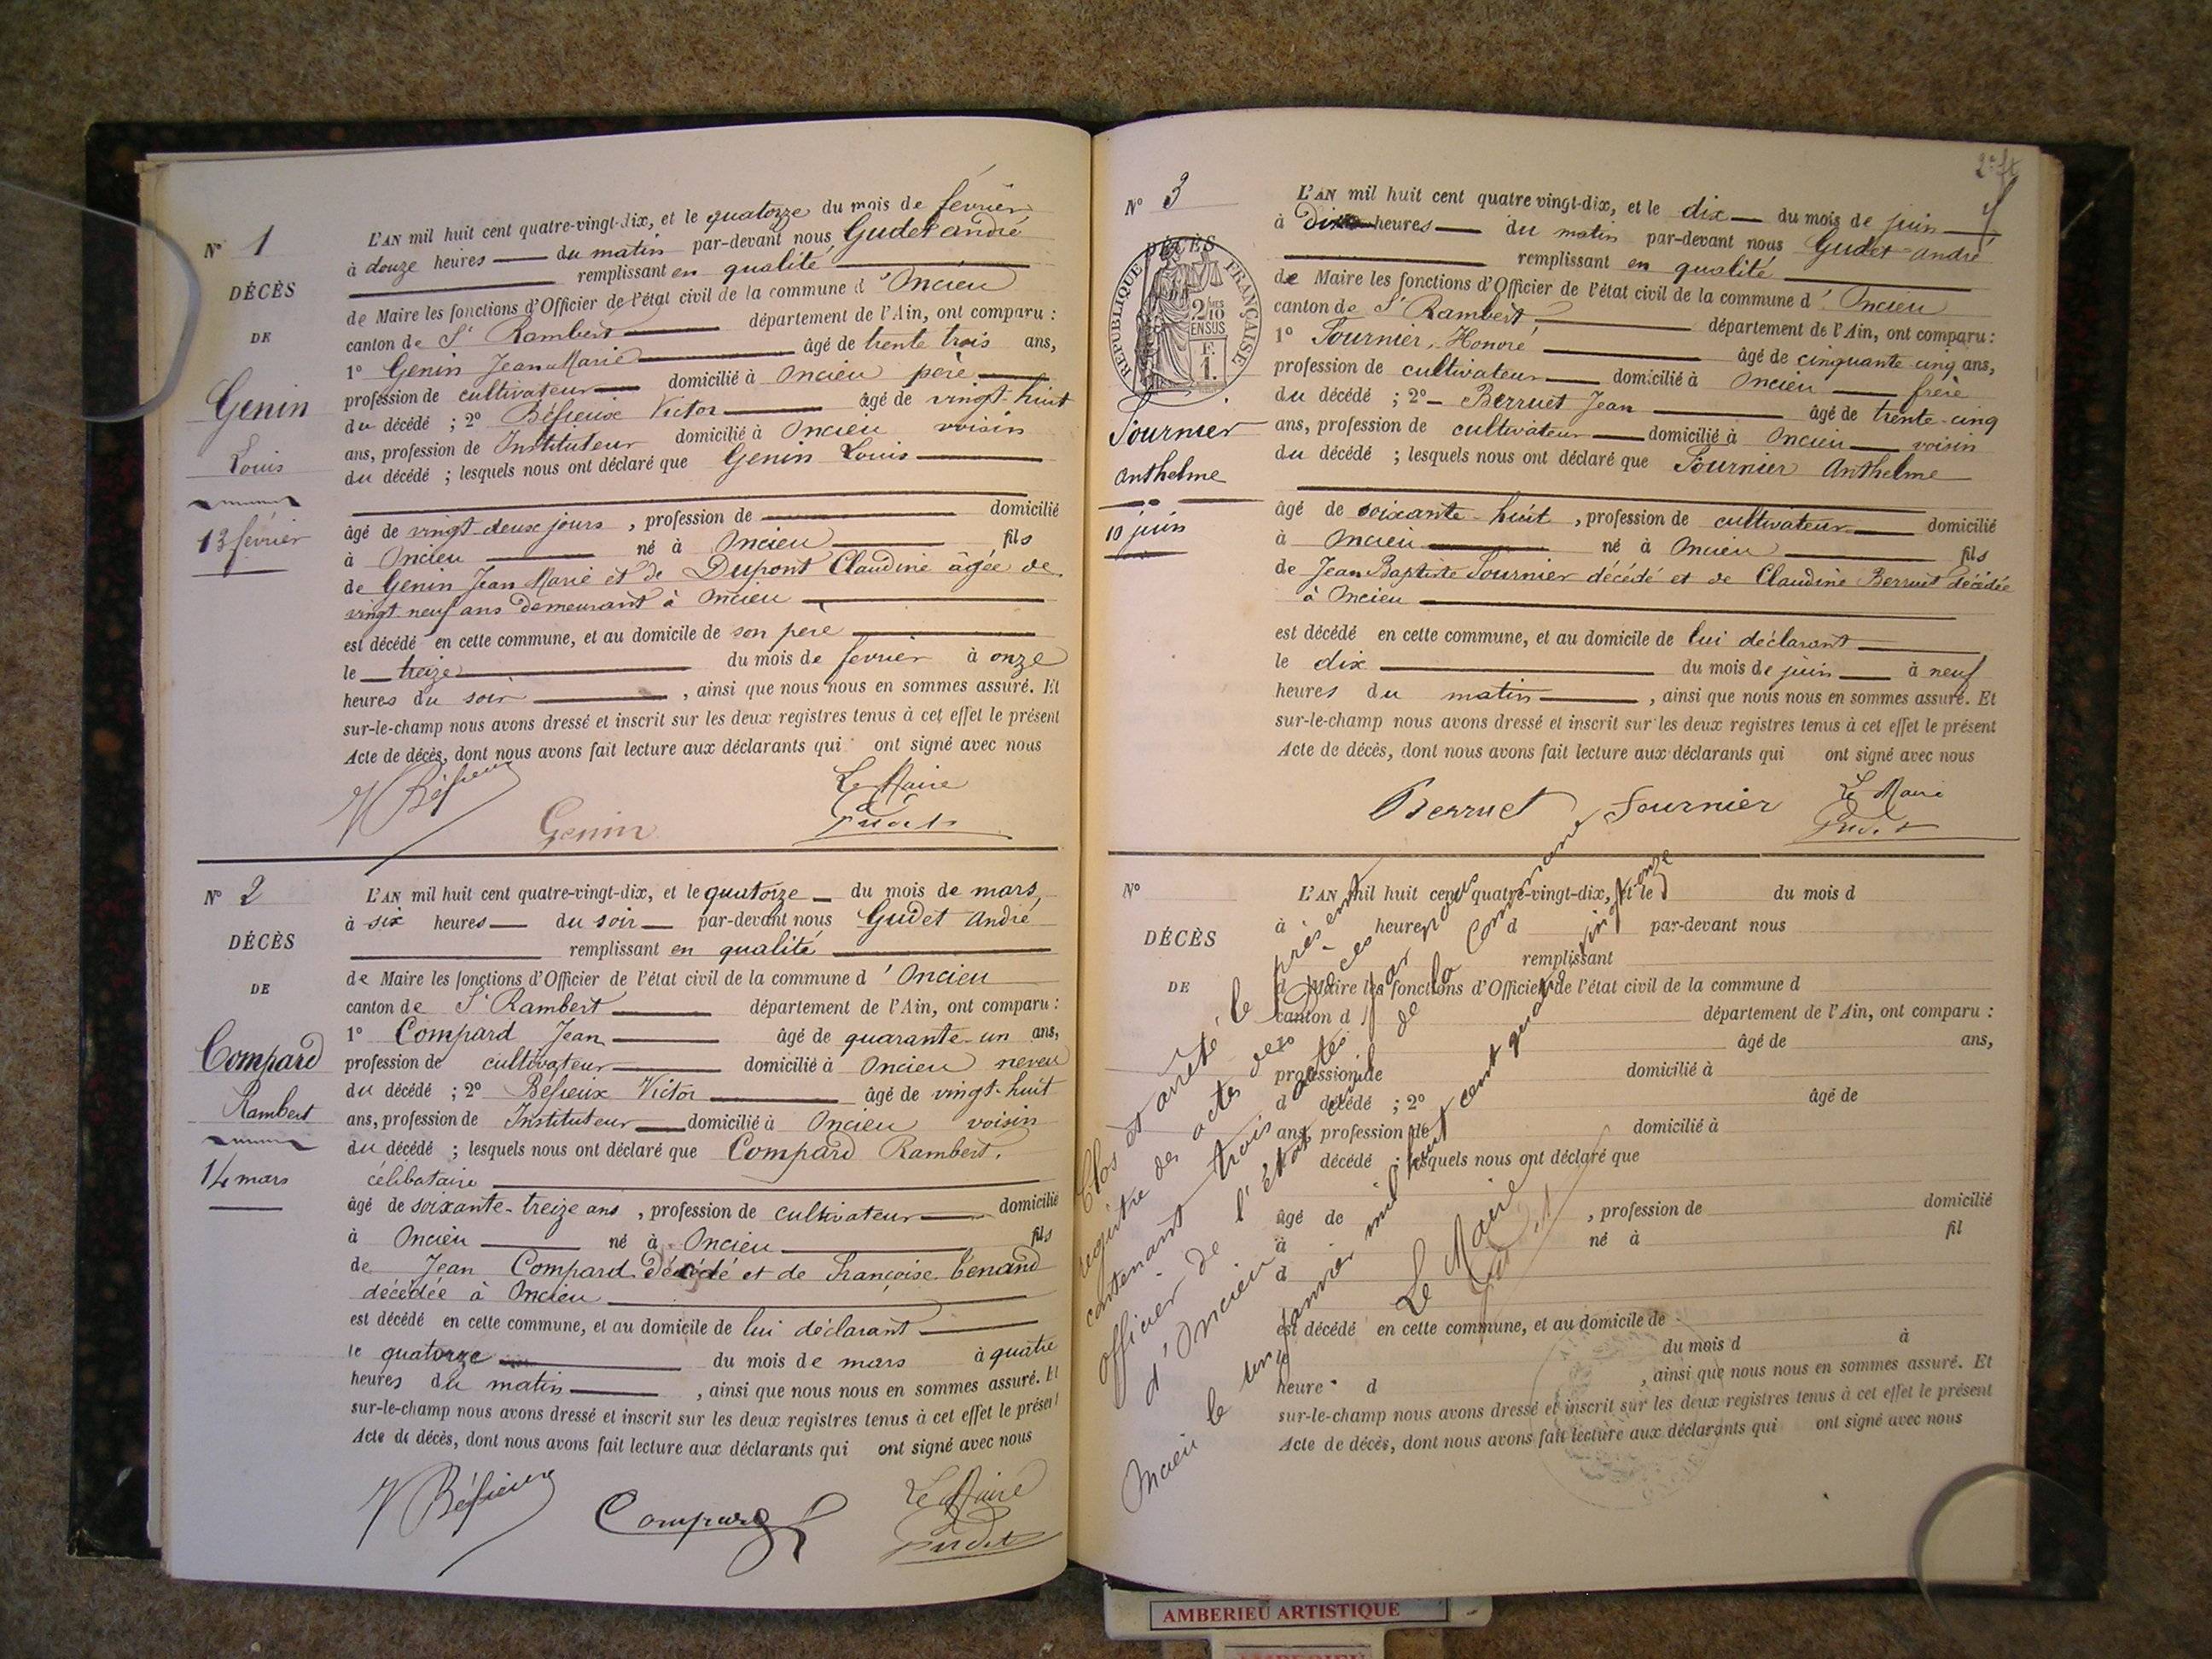 N° 1
DÉCÈS
DE
Genin
Louis
13 février
L'AN mil huit cent quatre-vingt-dix, et le quatorze du mois de février
à douze heures du matin par-devant nous Gudet andré
remplissant en qualité
de Maire les fonctions d'Officier de l'état civil de la commune d'Oncieu
canton de St Rambert département de l'Ain, ont comparu :
1° Genin Jean Marie âgé de trente trois ans,
profession de cultivateur domicilié à Oncieu père
du décédé ; 2° Béfieux Victor âgé de vingt-huit
ans, profession de Instituteur domicilié à Oncieu voisin
du décédé ; lesquels nous ont déclaré que Genin Louis
âgé de vingt deux jours, profession de domicilié
à Oncieu né à Oncieu fils
de Genin Jean Marie et de Dupont Claudine âgée de
vingt neuf ans demeurant à Oncieu
est décédé en cette commune, et au domicile de son père
le treize du mois de fevrier à onze
heures du soir, ainsi que nous nous en sommes assuré. Et
sur-le-champ nous avons dressé et inscrit sur les deux registres tenus à cet effet le présent
Acte de décès, dont nous avons fait lecture aux déclarants qui ont signé avec nous
V Béfieux
Genin
Le Maire
Gudet
N° 2
DÉCÈS
DE
Compard
Rambert
14 mars
L'AN mil huit cent quatre-vingt-dix, et le quatorze du mois de mars,
à six heures du soir par-devant nous Gudet andré
remplissant en qualité
de Maire les fonctions d'Officier de l'état civil de la commune d'Oncieu
canton de St Rambert département de l'Ain, ont comparu :
1° Compard Jean âgé de quarante-un ans,
profession de cultivateur domicilié à Oncieu neveu
du décédé ; 2° Béfieux Victor âgé de vingt-huit
ans, profession de Instituteur domicilié à Oncieu voisin
du décédé ; lesquels nous ont déclaré que Compard Rambert,
célibataire
âgé de soixante-treize ans, profession de cultivateur domicilié
à Oncieu né à Oncieu fils
de Jean Compard décédé et de Françoise
décédée à Oncieu
est décédé en cette commune, et au domicile de lui déclarant
le quatorze du mois de mars à quatre
heures du matin, ainsi que nous nous en sommes assuré. Et
sur-le-champ nous avons dressé et inscrit sur les deux registres tenus à cet effet le présent
Acte de décès, dont nous avons fait lecture aux déclarants qui ont signé avec nous
V Béfieux
Compard
Le Maire
Gudet
N° 3
RÉPUBLIQUE FRANÇAISE
DÉCÈS
2/10
EN SUS
F.
1.
Fournier
anthelme
10 juin
L'AN mil huit cent quatre vingt-dix, et le dix du mois de juin
à dix heures du matin par-devant nous Gudet andré
remplissant en qualité
de Maire les fonctions d'Officier de l'état civil de la commune d'Oncieu
canton de St Rambert département de l'Ain, ont comparu :
1° Fournier, Honoré âgé de cinquante cinq ans,
profession de cultivateur domicilié à Oncieu frère
du décédé ; 2° Berruet Jean âgé de trente-cinq
ans, profession de cultivateur domicilié à Oncieu voisin
du décédé ; lesquels nous ont déclaré que Fournier Anthelme
âgé de soixante-huit, profession de cultivateur domicilié
à Oncieu né à Oncieu fils
de Jean Baptiste Fournier décédé et de Claudine Berruet décédée
à Oncieu
est décédé en cette commune, et au domicile de lui déclarant
le dix du mois de juin à neuf
heures du matin, ainsi que nous nous en sommes assuré. Et
sur-le-champ nous avons dressé et inscrit sur les deux registres tenus à cet effet le présent
Acte de décès, dont nous avons fait lecture aux déclarants qui ont signé avec nous
Berruet
Fournier
Le Maire
Gudet
N°
DÉCÈS
DE
L'AN mil huit cent quatre-vingt-dix, et le du mois d
à heure d par-devant nous
remplissant
d Maire les fonctions d'Officier de l'état civil de la commune d
canton d département de l'Ain, ont comparu :
âgé de ans,
profession de domicilié à
d décédé ; 2° âgé de
ans, profession de domicilié à
décédé ; lesquels nous ont déclaré que
âgé de , profession de domicilié
à né à fil
d
est décédé en cette commune, et au domicile de
le du mois d à
heure d , ainsi que nous nous en sommes assuré. Et
sur-le-champ nous avons dressé et inscrit sur les deux registres tenus à cet effet le présent
Acte de décès, dont nous avons fait lecture aux déclarants qui ont signé avec nous
Clos et arrêté le présent
registre des actes de décès
contenant trois actes par nous
officier de l'état civil de la Commune
d'Oncieu
Oncieu le un janvier mil huit cent quatre vingt onze
Le Maire
Gudet
AMBERIEU ARTISTIQUE
AMBERIEU